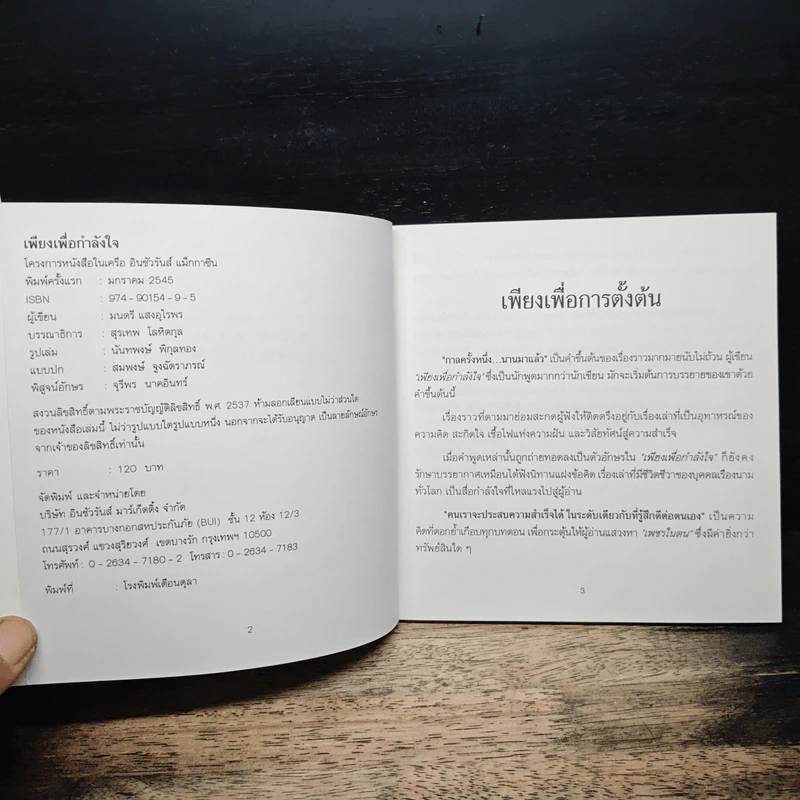 เพียงเพื่อกำลังใจ
โครงการหนังสือในเครือ อินชัวรันส์ แม็กกาซีน
พิมพ์ครั้งแรก : มกราคม 2545
ISBN : 974-90154-9-5
ผู้เขียน : มนตรี แสงอุไรพร
บรรณาธิการ : สุรเทพ โลหิตกุล
รูปเล่ม : นันทพงษ์ พิกุลทอง
แบบปก : สมพงษ์ จูงฉัตราภรณ์
พิสูจน์อักษร : จุรีพร นาคอินทร์
สงวนลิขสิทธิ์ตามพระราชบัญญัติลิขสิทธิ์ พ.ศ. 2537 ห้ามลอกเลียนแบบไม่ว่าส่วนใด
ของหนังสือเล่มนี้ ไม่ว่ารูปแบบใดรูปแบบหนึ่ง นอกจากจะได้รับอนุญาต เป็นลายลักษณ์อักษร
จากเจ้าของลิขสิทธิ์เท่านั้น
ราคา : 120 บาท
จัดพิมพ์ และจำหน่ายโดย
บริษัท อินชัวรันส์ มาร์เก็ตติ้ง จำกัด
177/1 อาคารบางกอกสหประกันภัย (BUI) ชั้น 12 ห้อง 12/3
ถนนสุรวงศ์ แขวงสุริยวงศ์ เขตบางรัก กรุงเทพฯ 10500
โทรศัพท์ : 0-2634-7180-2 โทรสาร : 0-2634-7183
พิมพ์ที่ : โรงพิมพ์เดือนตุลา
2
เพียงเพื่อการตั้งต้น
"กาลครั้งหนึ่ง...นานมาแล้ว" เป็นคำขึ้นต้นของเรื่องราวมากมายนับไม่ถ้วน ผู้เขียน
'เพียงเพื่อกำลังใจ' ซึ่งเป็นนักพูดมากกว่านักเขียน มักจะเริ่มต้นการบรรยายของเขาด้วย
คำขึ้นต้นนี้
เรื่องราวที่ตามมาย่อมสะกดผู้ฟังให้ติดตรึงอยู่กับเรื่องเล่าที่เป็นอุทาหรณ์ของ
ความคิด สะกิดใจ เชื้อไฟแห่งความฝัน และวิสัยทัศน์สู่ความสำเร็จ
เมื่อคำพูดเหล่านั้นถูกถ่ายทอดลงเป็นตัวอักษรใน 'เพียงเพื่อกำลังใจ' ก็ยังคง
รักษาบรรยากาศเหมือนได้ฟังนิทานแฝงข้อคิด เรื่องเล่าที่มีชีวิตชีวาของบุคคลเรืองนาม
ทั่วโลก เป็นสื่อกำลังใจที่ไหลแรงไปสู่ผู้อ่าน
"คนเราจะประสบความสำเร็จได้ ในระดับเดียวกับที่รู้สึกดีต่อตนเอง" เป็นความ
คิดที่ตอกย้ำเกือบทุกบทตอน เพื่อกระตุ้นให้ผู้อ่านแสวงหา 'เพชรในตน' ซึ่งมีค่ายิ่งกว่า
ทรัพย์สินใด ๆ
3